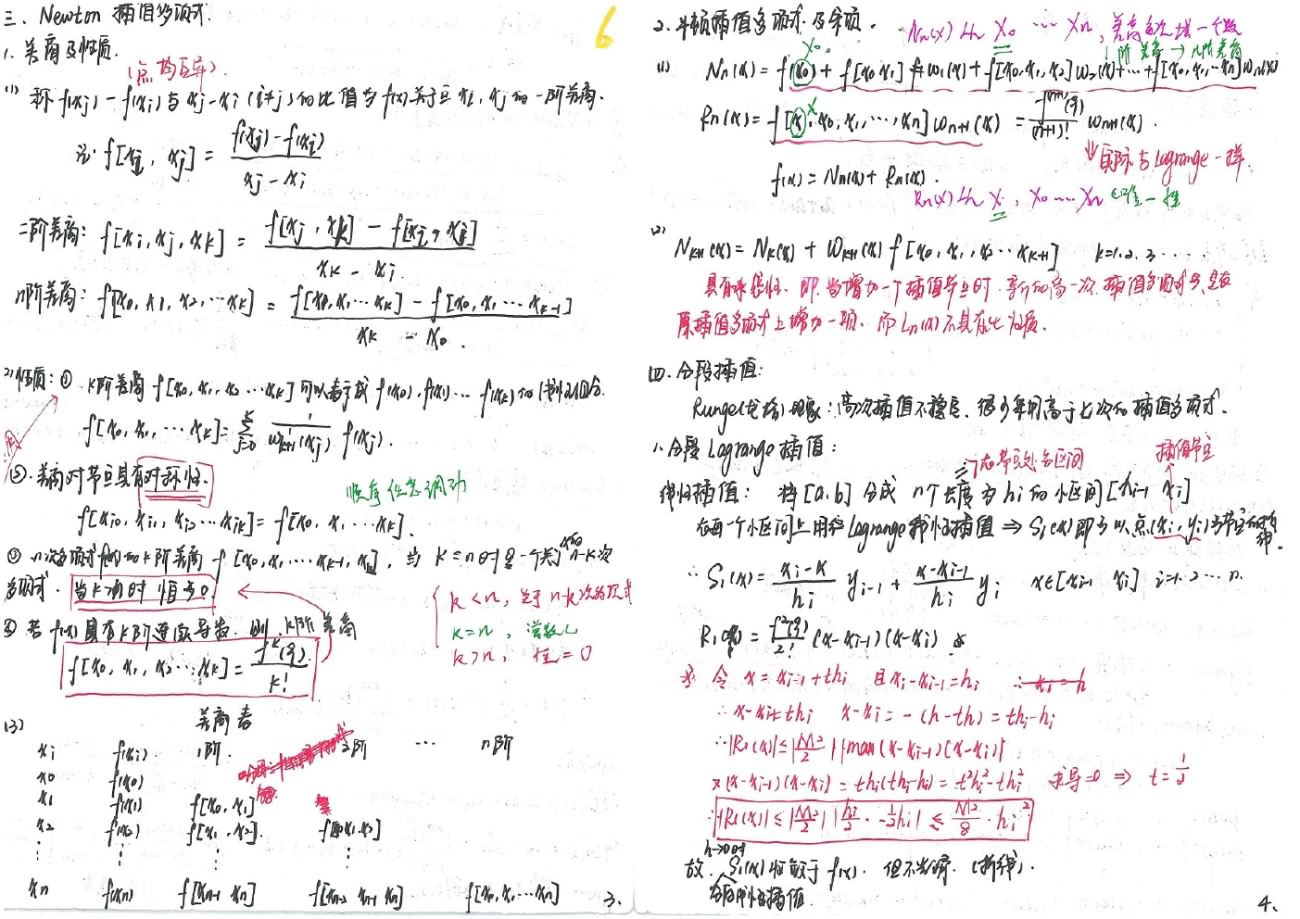 三、Newton 插值多项式.
6
1. 差商及性质.
(点均互异).
(1) 称 f(xj) - f(xi) 与 xj - xi (i≠j) 的比值为 f(x) 关于点 xi, xj 的一阶差商.
f[xi, xj] = (f(xj) - f(xi)) / (xj - xi)
二阶差商: f[xi, xj, xk] = (f[xj, xk] - f[xi, xj]) / (xk - xi).
n阶差商: f[x0, x1, x2, ... xk] = (f[x0, x1, ... xk] - f[x0, x1, ... xk-1]) / (xk - x0).
(2) 性质: ① k阶差商 f[x0, x1, x2 ... xk] 可以表示成 f(x0), f(x1) ... f(xk) 的线性组合.
f[x0, x1, ... xk] = Σ(j=0..k) 1/ω'k+1(xj) f(xj).
②. 差商对节点具有对称性.
顺序任意调动
f[xi0, xi1, xi2 ... xik] = f[x0, x1 ... xk].
③ n次多项式f(x)的k阶差商 f[x0, x1, ... xk-1, xk], 当 k = n 时是一个 n-k次
多项式. 当k>n时 恒为0.
k < n, 是 n-k次多项式
k = n, 常数
k > n, 恒 = 0
④ 若 f(x) 具有k阶连续导数, 则 k阶差商
f[x0, x1, x2 ... xk] = f^k(ξ) / k!
(3) 差商表
xi f(xi) 1阶. 2阶 ... n阶
x0 f(x0)
x1 f(x1) f[x0, x1]
x2 f(x2) f[x1, x2]. f[x0 x1 x2]
⋮ ⋮ ⋮ ⋮
xn f(xn) f[xn-1 xn] f[xn-2 xn-1 xn] f[x0, x1 ... xn]
3.
2. 牛顿插值多项式及余项.
Nn(x) 从 x0 ... xn, 差商每次增一个数
1阶差商 → n阶差商
x0.
(1) Nn(x) = f(x0) + f[x0 x1] ω1(x) + f[x0, x1, x2] ω2(x) + ... + f[x0, x1, ... xn] ωn(x)
x
Rn(x) = f[x, x0, x1, ..., xn] ωn+1(x) = f^(n+1)(ξ) / (n+1)! ωn+1(x).
⇓ 实际与 Lagrange 一样
f(x) = Nn(x) + Rn(x).
Rn(x) 从 x, x0 ... xn 一样
(2) Nk+1(x) = Nk(x) + ωk+1(x) f[x0, x1, x2 ... xk+1] k=1. 2. 3 ...
具有承袭性. 即 当增加一个插值节点时, 新的高一次插值多项式只是在
原插值多项式上增加一项. 而 Ln(x) 不具有此性质.
四. 分段插值:
Runge(龙格)现象: 高次插值不稳定, 很少采用高于七次的插值多项式.
1. 分段 Lagrange 插值:
插值节点
线性插值: 将 [a, b] 分成 n个长度为 hi 的小区间 [xi-1 xi]
在每一个小区间上用 Lagrange 线性插值 ⇒ S1(x) 即为以点(xi, yi)为节点的折线.
∴ S1(x) = (xi - x)/hi yi-1 + (x - xi-1)/hi yi x∈[xi-1 xi] i=1. 2 ... n.
R1(x) = f²(ξ)/2! (x - xi-1)(x - xi)
※ 令 x = xi-1 + thi 且 xi - xi-1 = hi
∴ x - xi-1 = thi x - xi = -(h - th) = thi - hi
∴ |R1(x)| ≤ |M2/2| |max (x - xi-1)(x - xi)|
又 (x - xi-1)(x - xi) = thi(thi - hi) = t²hi² - thi² 求导=0 ⇒ t = 1/2
∴ |R1(x)| ≤ |M2/2| |hi/2 · -1/2 hi| ≤ M2/8 · hi²
h→0时
故 S1(x) 收敛于 f(x). 但不光滑. (折线).
分段线性插值
4.